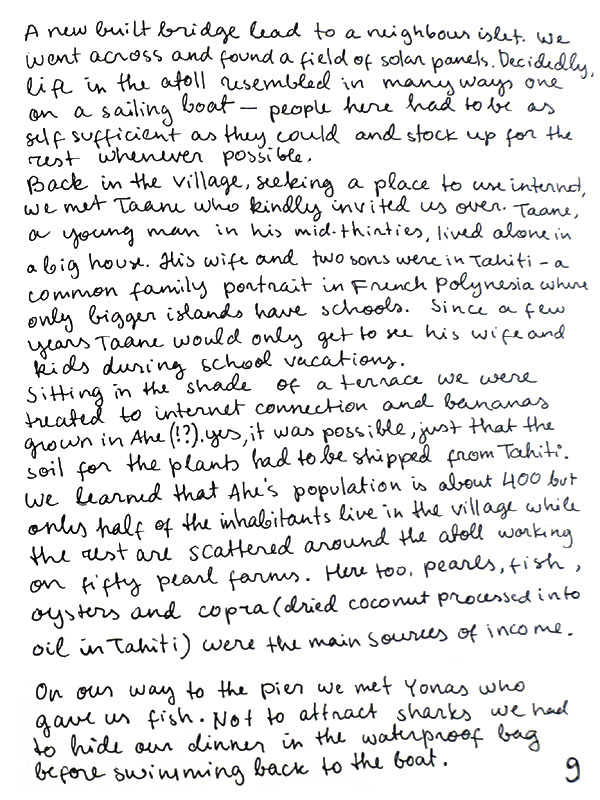 A new built bridge lead to a neighbour islet. We
went across and found a field of solar panels. Decidedly,
life in the atoll resembled in many ways one
on a sailing boat – people here had to be as
self sufficient as they could and stock up for the
rest whenever possible.
Back in the village, seeking a place to use internet,
we met Taane who kindly invited us over. Taane,
a young man in his mid-thirties, lived alone in
a big house. His wife and two sons were in Tahiti – a
common family portrait in French Polynesia where
only bigger islands have schools. Since a few
years Taane would only get to see his wife and
kids during school vacations.
Sitting in the shade of a terrace we were
treated to internet connection and bananas
grown in Ahe (!?). yes, it was possible, just that the
soil for the plants had to be shipped from Tahiti.
We learned that Ahe's population is about 400 but
only half of the inhabitants live in the village while
the rest are scattered around the atoll working
on fifty pearl farms. Here too, pearls, fish,
oysters and copra (dried coconut processed into
oil in Tahiti) were the main sources of income.
On our way to the pier we met Yonas who
gave us fish. Not to attract sharks we had
to hide our dinner in the waterproof bag
before swimming back to the boat.
9